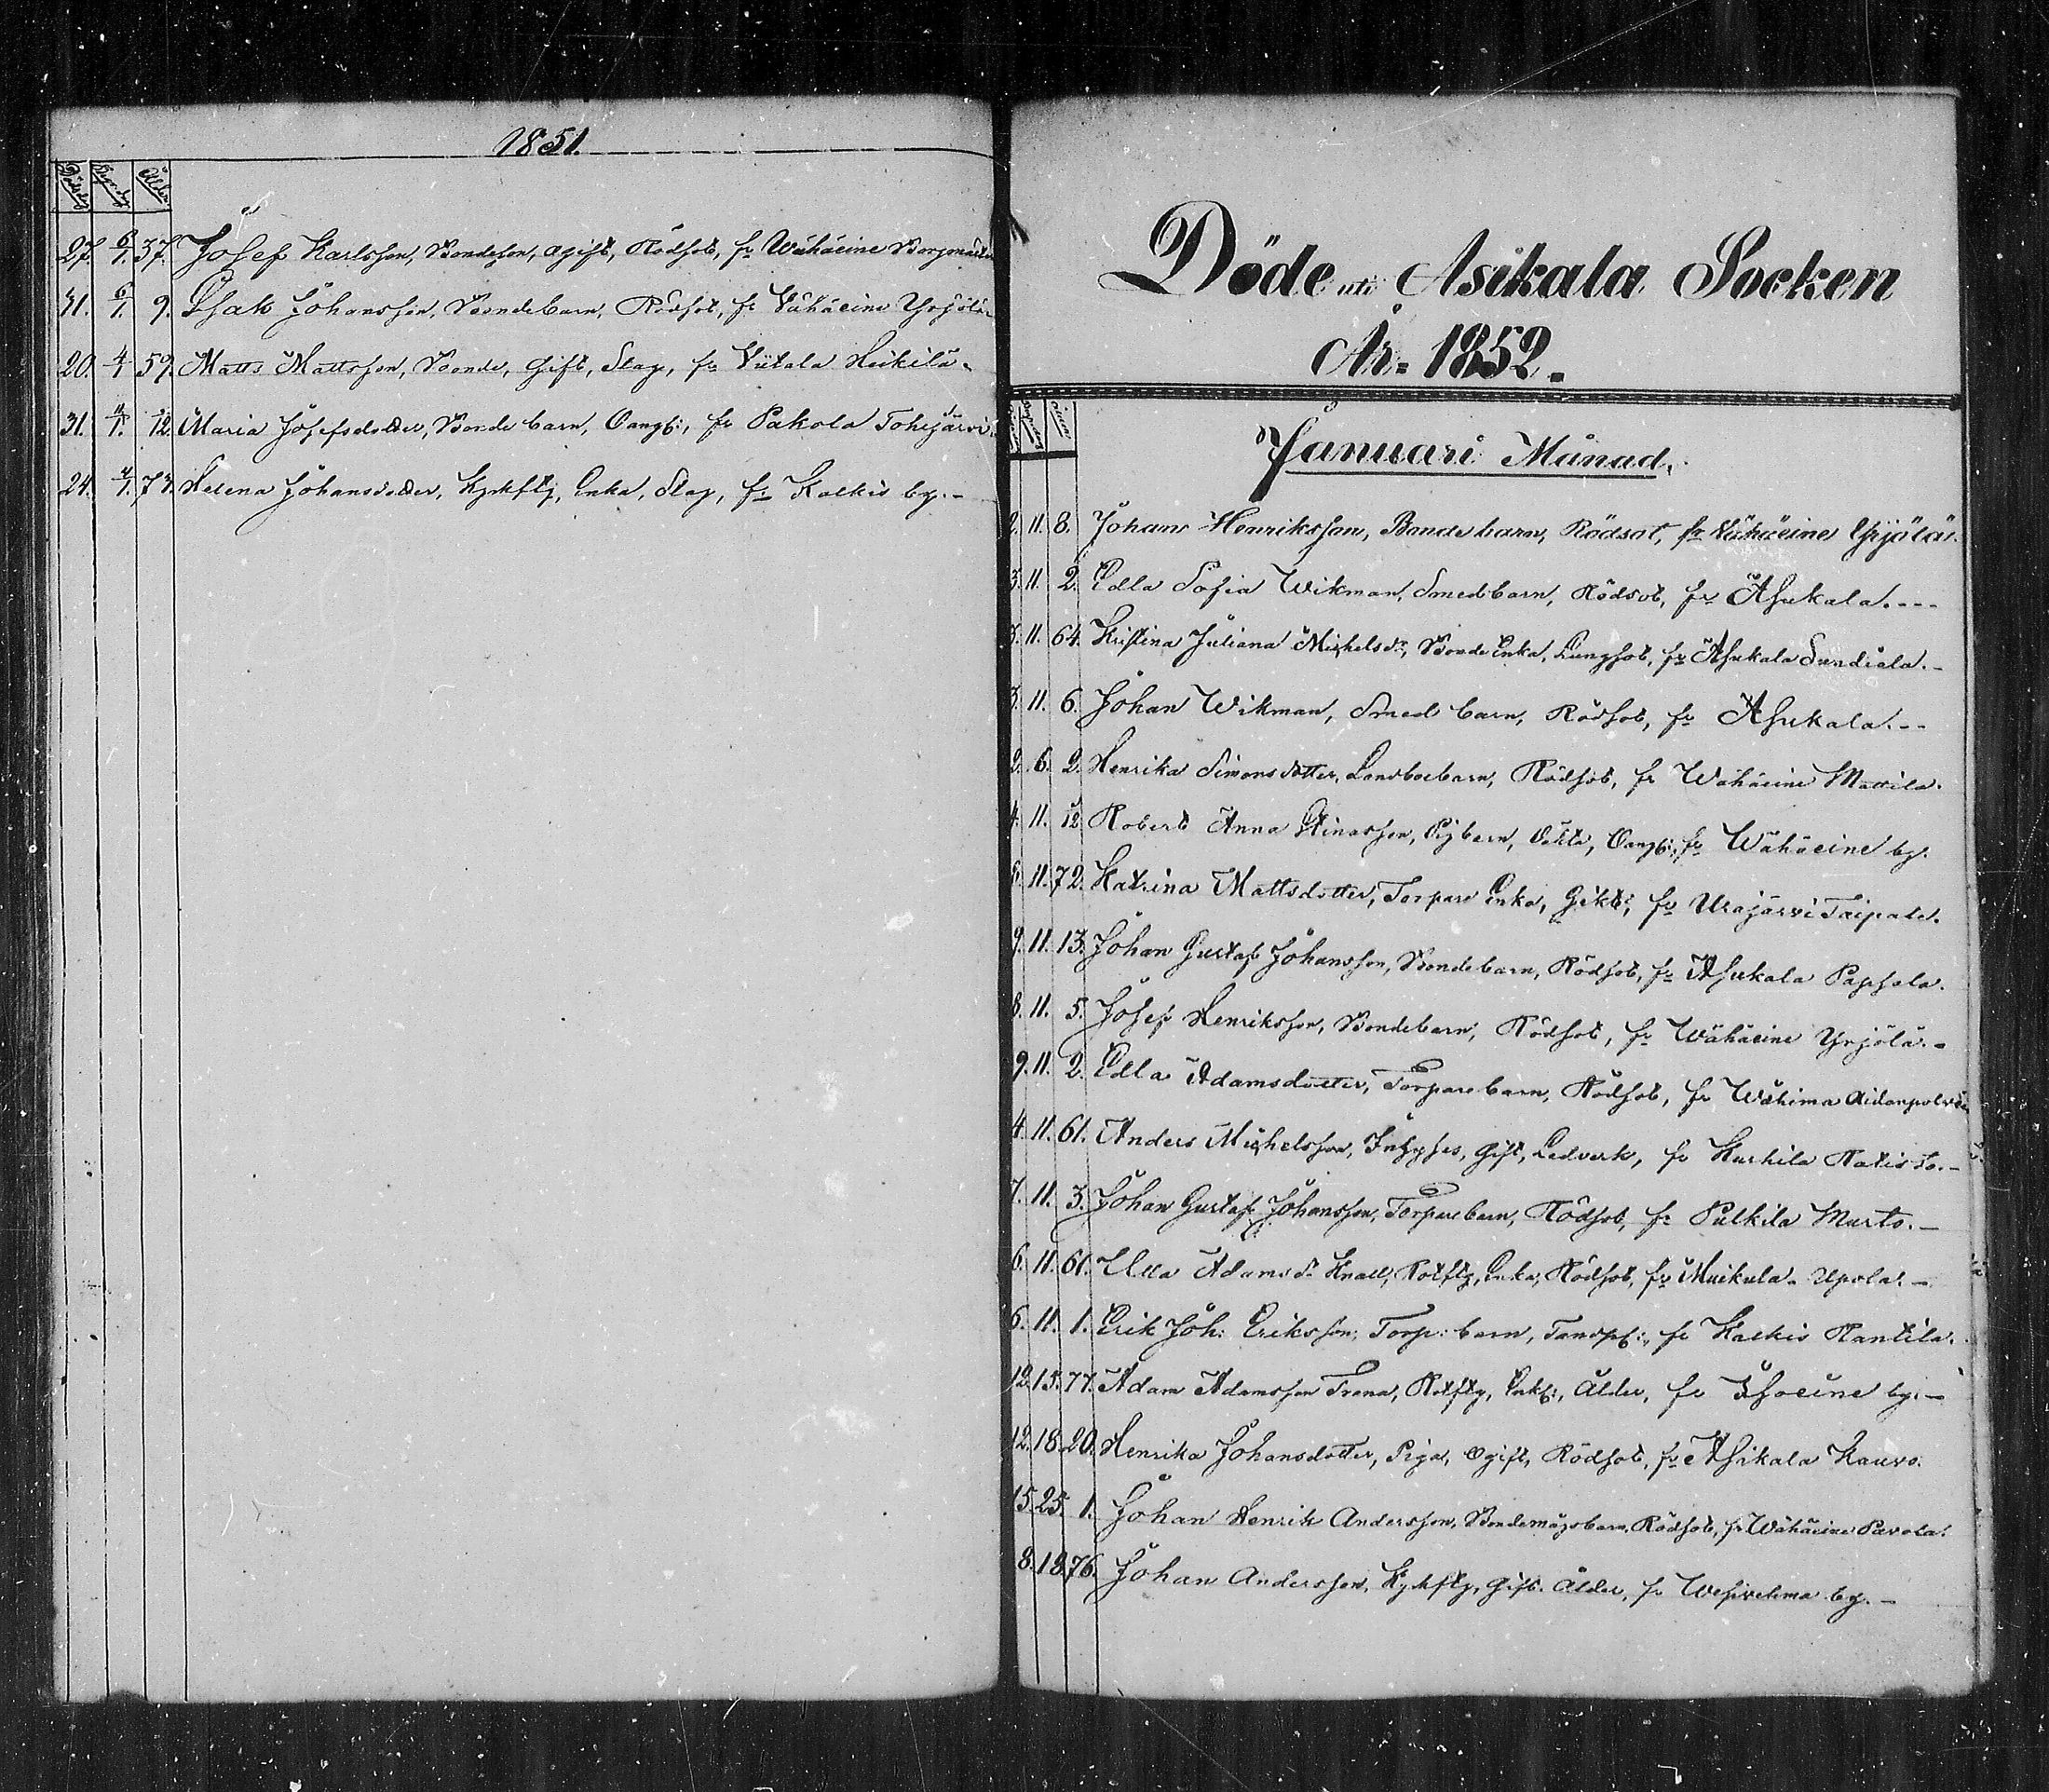 1851.
Dödsdag Begr.dag Ålder
27. 6/1. 37. Josef Karlsson, Bondeson, ogift, Rödsot, fr. Wähäeine
31. 6/1. 9. Isak Johansson, Bondebarn, Rödsot, fr. Vähäeine Yrjölä.
20. 4/1 59. Matts Mattsson, Bonde, Gift, Slag, fr. Viitala Heikilä.
31. 11/1. 12. Maria Josefsdotter, Bonde barn, Oangf:, fr. Pakola Tohijärvi.
24. 4/1. 73. Helena Johansdotter, Kyrkftg, Enka, Slag, fr. Kalkis by.-
Döde uti Asikala Socken
År. 1852.
Januari Månad.
2. 11. 8. Johan Henriksson, Bondebarn, Rödsot, fr. Vähäeine Yrjölä.
3. 11. 2. Edla Sofia Wikman, Smedbarn, Rödsot, fr. Asikala.---
11. 64. Kristina Juliana Michelsdr, Bonde Enka, Lungsot, fr. Asikala Sundiela.-
3. 11. 6. Johan Wikman, Smed barn, Rödsot, fr. Asikala.--
2. 6. 2. Henrika Simonsdotter, Landboebarn, Rödsot, fr Wähäeine Mattila.
4. 11. 12 Robert Anna Stinasson, Pigbarn, Oäkta, Oangf:, fr Wähäeine by.
11. 72. Katrina Mattsdotter, Torpare Enka, Gikt:, fr Urajärvi Taipale.
9. 11. 13. Johan Gustaf Johansson, Bondebarn, Rödsot, fr. Asikala Papsola.
8. 11. 5. Josef Henriksson, Bondebarn, Rödsot, fr. Wähäeine Yrjölä.-
9. 11. 2. Edla Adamsdotter, Torparebarn, Rödsot, fr Wähima
4. 11. 61. Anders Michelsson, Inhyses, Gift, Ledverk, fr Kurhila
7. 11. 3. Johan Gustaf Johansson, Torparebarn, Rödsot, fr. Pulkila Murto.-
6. 11. 61. Ulla Adamsdr Knall, Rotftg, Enka, Rödsot, fr Muikula. Upola.-
6. 11. 1. Erik Joh: Eriksson, Torp: barn, Tandspf:, fr Kalkis Rantila.
12. 15. 77. Adam Adamsson Trena, Rotftg, Enkl:, Ålder, fr Isoeine by.-
12. 18. 20. Henrika Johansdotter, Piga, Ogift, Rödsot, fr Asikala Kauro.
15. 25. 1. Johan Henrik Andersson, Bondemågsbarn, Rödsot, fr Wähäeine Pavola.
8. 18. 76. Johan Andersson, Kyrkftg, Gift. Ålder, fr Wesivehma by.-